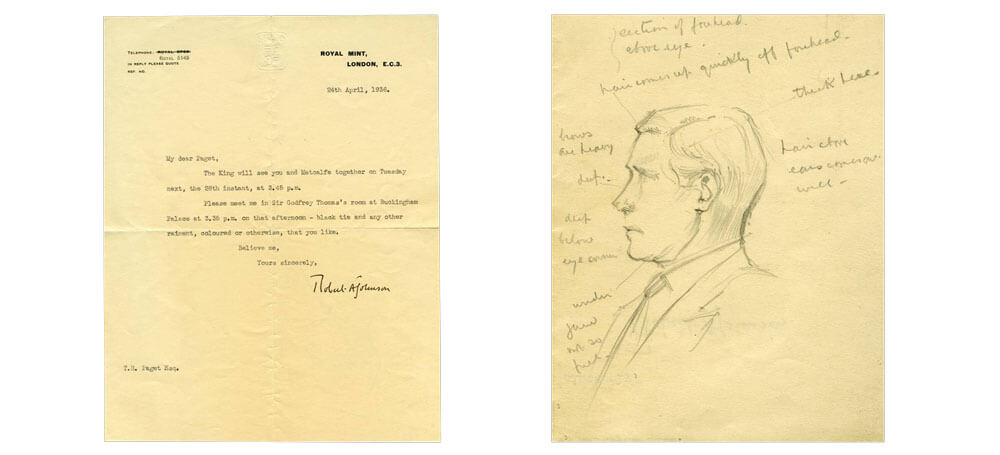 TELEPHONE: ROYAL
ROYAL 8143
IN REPLY PLEASE QUOTE
REF. NO.
ROYAL MINT,
LONDON, E.C.3.
24th April, 1936.
My dear Paget,
The King will see you and Metcalfe together on Tuesday
next, the 28th instant, at 3.45 p.m.
Please meet me in Sir Godfrey Thomas's room at Buckingham
Palace at 3.35 p.m. on that afternoon - black tie and any other
raiment, coloured or otherwise, that you like.
Believe me,
Yours sincerely,
Robert A Johnson
T.H. Paget Esq.
section of forehead
above eye.
hair comes up quickly off forehead.
thick here.
brows
are heavy
deep.
hair above
ears comes out
well -
deep
below
eye corner
under
jaw
not so